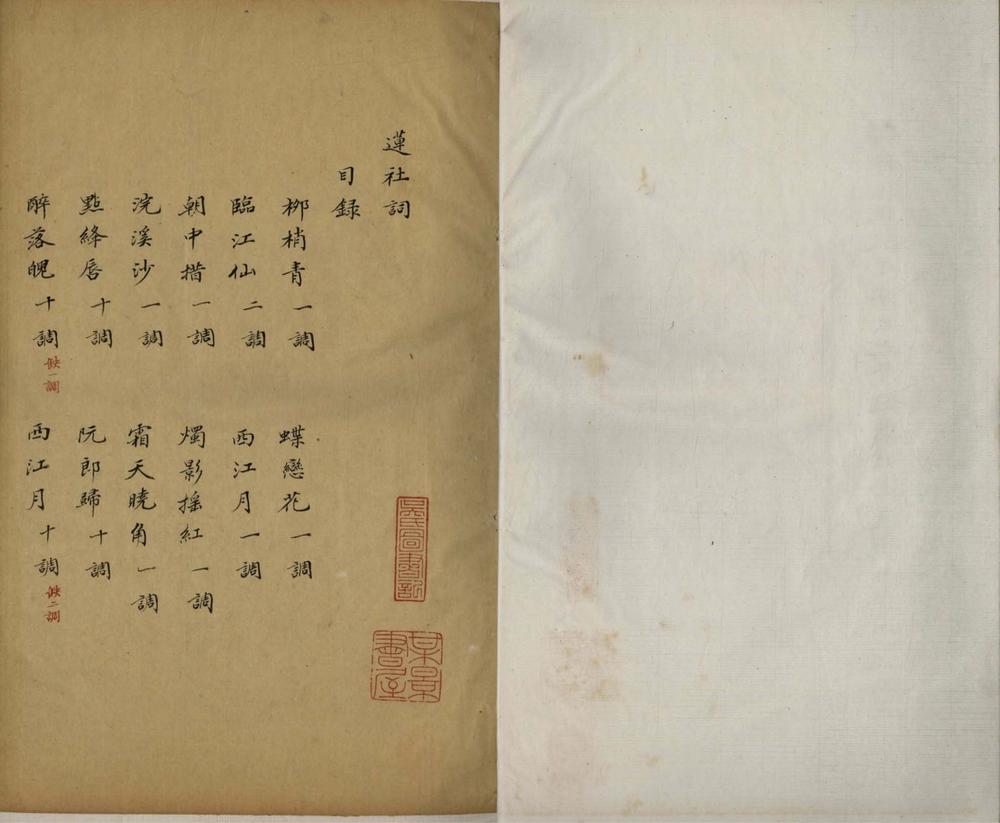 蓮社詞
目録
柳梢青一調
蝶戀花一調
臨江仙二調
西江月一調
朝中措一調
燭影搖紅一調
浣溪沙一調
霜天曉角一調
點絳唇十調
阮郎歸十調
醉落魄十調缺一調
西江月十調缺二調
吳氏圖書記
某景書屋